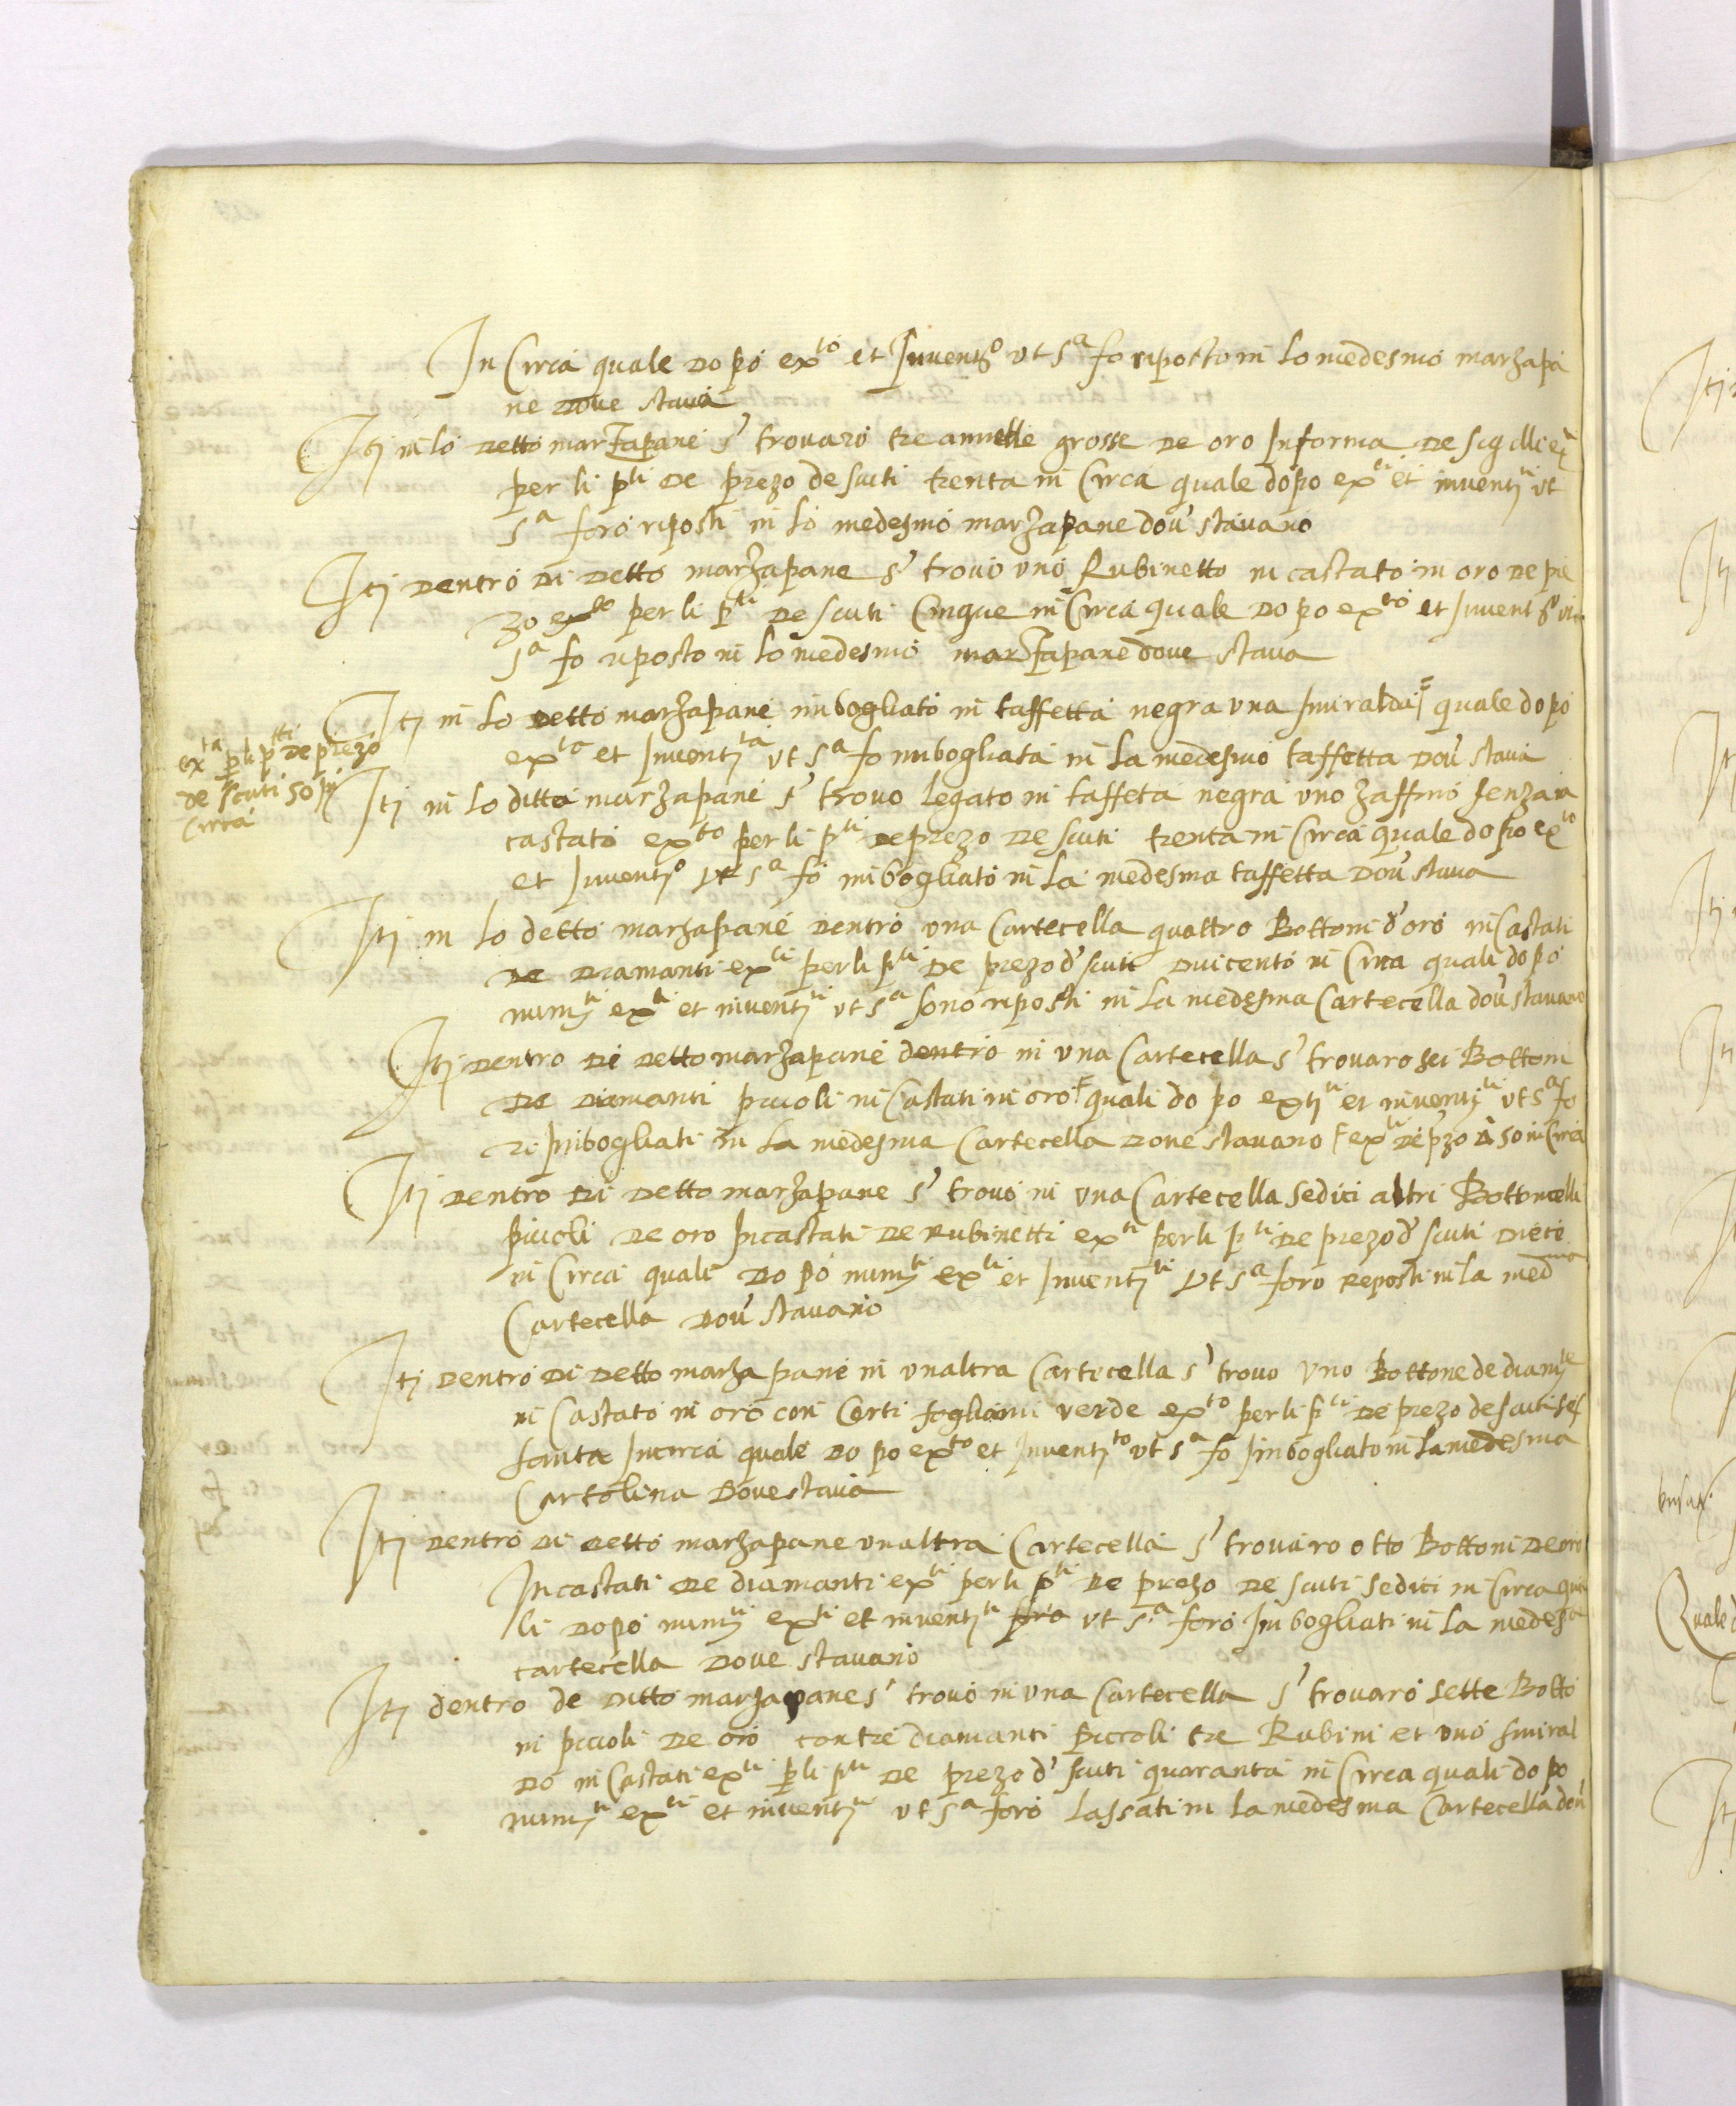 In Circa quale dopo ex^to et Invent^o ut s^a fo riposto in lo medesmo marzapa
ne dove stava
Itj in lo detto marzapane s' trovaro tre annelle grosse de oro In forma de sigilli ex
per li p^ti de prezo de scuti trenta in Circa quale dopo ex^ti et inventj^ti ut
s^a foro riposti in lo medesmo marzapane dov' stavano
Itj dentro di detto marzapane s' trovò uno Rubinetto incastato in oro de pre
zo ex^to per li p^ti de scuti Cinque in Circa quale dopo ex^to et Invent^o ut
s^a fo riposto in lo medesmo marzapane dove stava
Itj in lo detto marzapane imbogliato in taffetta negra una smiralda quale dopo
ex^ta p li p^tti de prezo
de scuti 50 in
circa
ex^ta et Inventj^ta ut s^a fo imbogliata in la medesmo taffetta dov' stava
Itj in lo ditto marzapane s' trovo legato in taffeta negra uno zaffino senza in
castato ex^to per li p^ti de prezo de scuti trenta in Circa quale dopo ex^to
et Inventj^o ut s^a fo imbogliato in la medesma taffetta dov' stava
Itj in lo detto marzapane dentro una Cartecella quattro Bottoni d'oro in Castati
de diamanti ex^ti per li p^ti de prezo d' scuti duicento in Circa quali dopo
numj^ti ex^ti et inventj^ti ut s^a sono riposti in la medesma Cartecella dov' stavano
Itj dentro di detto marzapane dentro in una Cartecella s' trovaro sei Bottoni
de diamanti piccoli in Castati in oro quali dopo extj^ti et inventj^ti ut s^a fo
ri imbogliati in la medesma Cartecella dove stavano ex^ti de pzo d 50 in Circa
Itj dentro di detto marzapane s' trovò in una Cartecella sedici altri Bottoncelli
piccoli de oro Incastati de Rubinetti ex^ti per li p^ti de prezo d' scuti diece
in Circa quali dopo numj^ti ex^ti et Inventj^ti ut s^a foro reposti in la med^ma
Cartecella dov' stavano
Itj dentro di detto marzapane in un altra Cartecella s' trovo uno Bottone de diamj^te
in Castato in oro con Certi fogliami verde ex^to per li p^ti de prezo de scuti ses
santa In circa quale dopo ex^to et Inventj^to ut s^a fo Imbogliato in la medesma
Cartolina dove stava
Itj dentro di detto marzapane unaltra Cartecella s' trovaro otto Bottoni de oro
Incastati de diamanti ex^ti per li p^ti de prezo de scuti sedici in Circa qua
li dopo numj^ti ex^ti et inventj^ti ut s^a foro Imbogliati in la medes^a
cartecella dove stavano
Itj dentro de ditto marzapane s' trovò in una Cartecella s' trovaro sette Botto
ni piccoli de oro con tre diamanti piccoli tre Rubini et uno smiral
do in Castati ex^ti p li p^ti de prezo d' scuti quaranta in Circa quali dopo
numj^ti ex^ti et inventj^ti ut s^a foro lassati in la medesma Cartecella dov'